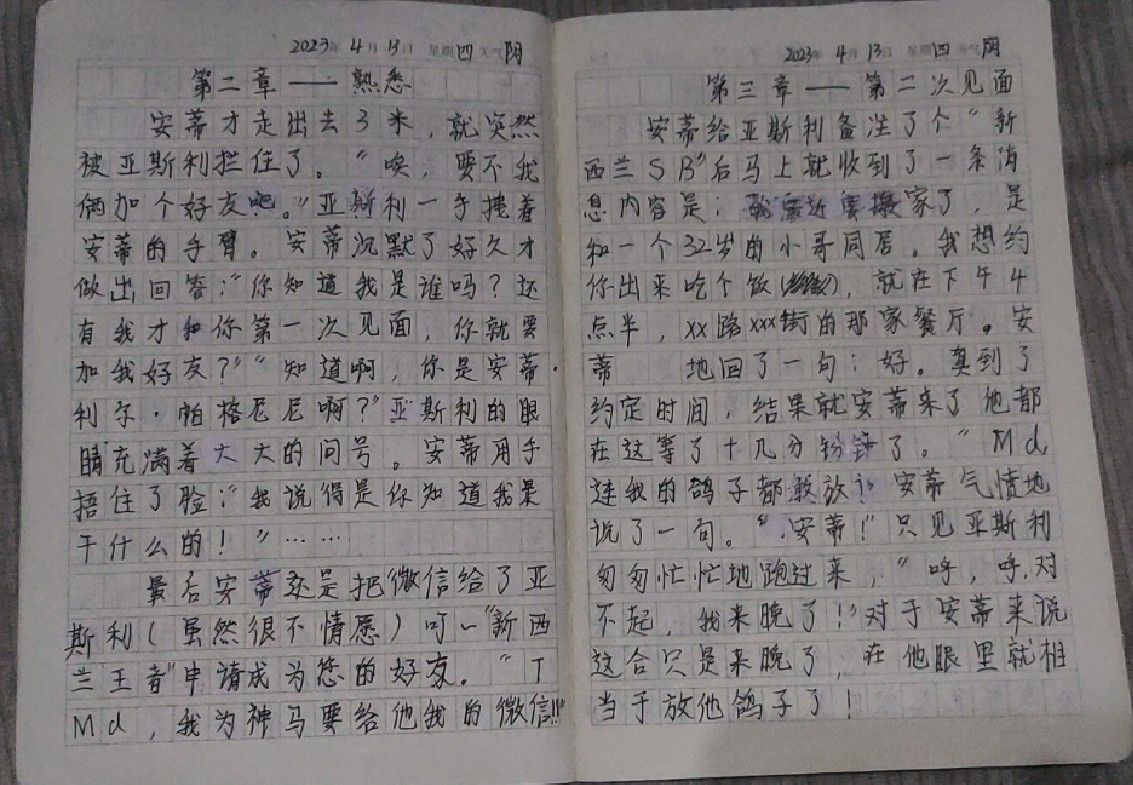 2023年 4月 13日 星期四 天气阴
第二章——熟悉
安蒂才走出去3米，就突然
被亚斯利拦住了。“唉，要不我
俩加个好友吧。”亚斯利一手拽着
安蒂的手臂。安蒂沉默了好久才
做出回答：“你知道我是谁吗？还
有我才和你第一次见面，你就要
加我好友？”“知道啊，你是安蒂·
利尔·帕格尼尼啊？”亚斯利的眼
睛充满着大大的问号。安蒂用手
捂住了脸：“我说得是你知道我是
干什么的！”……
最后安蒂还是把微信给了亚
斯利（虽然很不情愿）叮～“新西
兰王者”申请成为您的好友。“T
Md，我为神马要给他我的微信!!”
2023年 4月 13日 星期四 阴
第三章——第二次见面
安蒂给亚斯利备注了个“新
西兰SB”后马上就收到了一条消
息内容是：我最近要搬家了，是
和一个32岁的小哥同居。我想约
你出来吃个饭，就在下午4
点半，xx路xxx街的那家餐厅。安
蒂 地回了一句：好。真到了
约定时间，结果就安蒂来了他都
在这等了十几分钟了。“Md
连我的鸽子都敢放！”安蒂气愤地
说了一句。“安蒂！”只见亚斯利
匆匆忙忙地跑过来，“呼，呼，对
不起，我来晚了！”对于安蒂来说
这合只是来晚了，在他眼里就相
当于放他鸽子了！